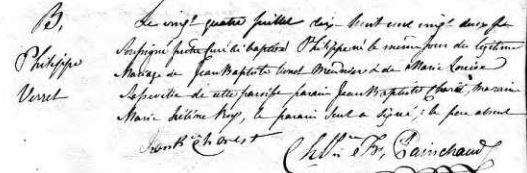 B.
Philippe
Verret
Le vingt quatre juillet dix huit cent vingt deux je
Soussigné prêtre curé ai baptisé Philippe né le même jour du légitime
Mariage de Jean Baptiste Meunier & de Marie Louise
de cette paroisse parain Jean Baptiste Charest, maraine
Marie Roy, le parain seul a signé; le père absent
Jean Bte Charest
Chs Frs Painchaud